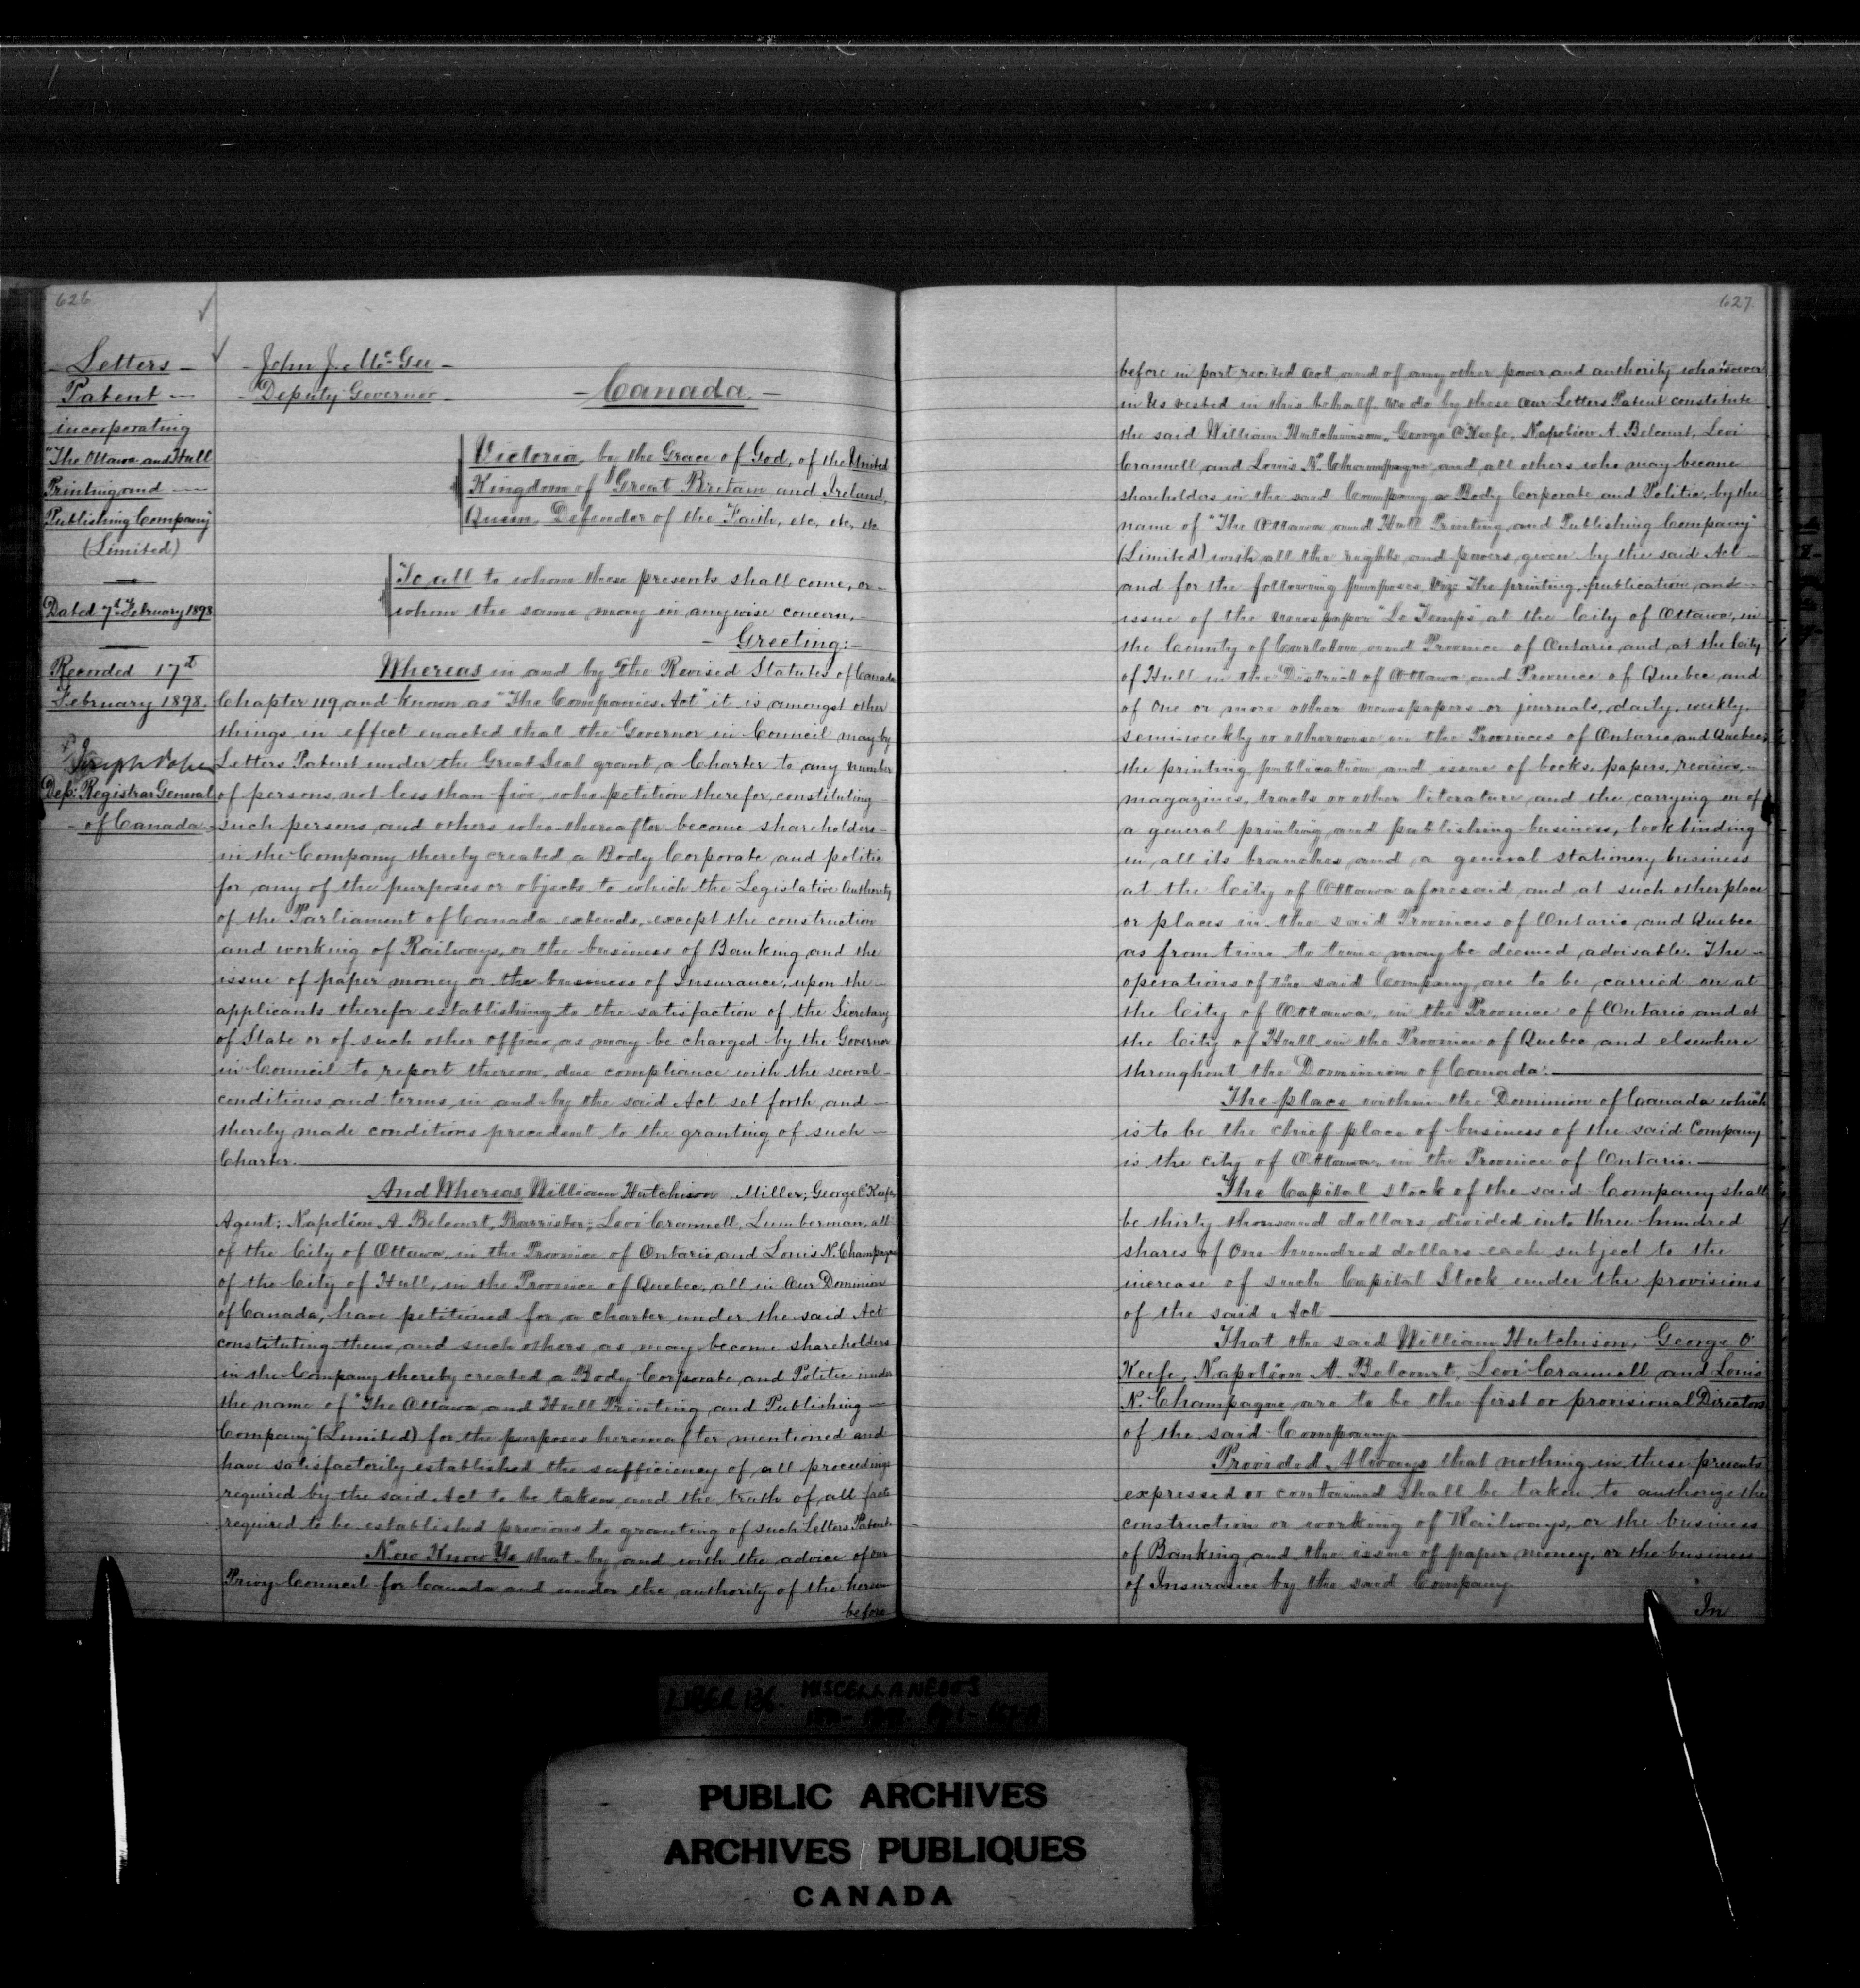 626
Letters
Patent
incorporating
"The Ottawa and Hull
Printing and
Publishing Company
(Limited)
Dated 7th February 1898
Recorded 17th
February 1898.
Joseph Pope
Dep: Registrar General
of Canada
John J. McGee
Deputy Governor
Canada.
Victoria, by the Grace of God, of the United
Kingdom of Great Britain and Ireland,
Queen, Defender of the Faith, etc, etc, etc
To all to whom these presents shall come, or
whom the same may in anywise concern,
Greeting:
Whereas in and by the Revised Statutes of Canada
Chapter 119, and known as "The Companies Act" it is amongst other
things in effect enacted that the Governor in Council may by
Letters Patent under the Great Seal grant a Charter to any number
of persons, not less than five, who petition therefor, constituting
such persons and others who thereafter become shareholders
in the Company thereby created a Body Corporate and politic
for any of the purposes or objects to which the Legislative Authority
of the Parliament of Canada extends, except the construction
and working of Railways, or the business of Banking and the
issue of paper money or the business of Insurance, upon the
applicants therefor establishing to the satisfaction of the Secretary
of State or of such other officer as may be charged by the Governor
in Council to report thereon, due compliance with the several
conditions and terms in and by the said Act set forth and
thereby made conditions precedent to the granting of such
Charter.
And Whereas William Hutchison Miller; George O'Keefe,
Agent; Napoléon A. Belcourt, Barrister; Levi Crannell, Lumberman, all
of the City of Ottawa, in the Province of Ontario and Louis N. Champagne
of the City of Hull, in the Province of Quebec, all in Our Dominion
of Canada, have petitioned for a charter under the said Act
constituting them and such others as may become shareholders
in the Company thereby created a Body Corporate and Politic under
the name of "The Ottawa and Hull Printing and Publishing
Company" (Limited) for the purposes hereinafter mentioned and
have satisfactorily established the sufficiency of all proceedings
required by the said Act to be taken and the truth of all facts
required to be established previous to granting of such Letters Patent.
Now Know Ye that by and with the advice of our
Privy Council for Canada and under the authority of the herein
before
627
before in part recited Act, and of any other power and authority whatsoever
in Us vested in this behalf, We do by these Our Letters Patent constitute
the said William Hutchinson, George O'Keefe, Napoléon A. Belcourt, Levi
Crannell and Louis N. Champagne and all others who may become
shareholders in the said Company a Body Corporate and Politic, by the
name of "The Ottawa and Hull Printing and Publishing Company"
(Limited) with all the rights and powers given by the said Act
and for the following purposes viz: The printing, publication and
issue of the newspaper "Le Temps" at the City of Ottawa, in
the County of Carleton and Province of Ontario and at the City
of Hull in the District of Ottawa and Province of Quebec and
of one or more other newspapers or journals, daily, weekly,
semi-weekly or otherwise in the Provinces of Ontario and Quebec,
the printing publication and issue of books, papers, reviews,
magazines, tracts or other literature and the carrying on of
a general printing and publishing business, bookbinding
in all its branches and a general stationery business
at the City of Ottawa aforesaid and at such other place
or places in the said Provinces of Ontario and Quebec
as from time to time may be deemed advisable. The
operations of the said Company are to be carried on at
the City of Ottawa, in the Province of Ontario and at
the City of Hull in the Province of Quebec and elsewhere
throughout the Dominion of Canada.
The place within the Dominion of Canada which
is to be the chief place of business of the said Company
is the city of Ottawa, in the Province of Ontario.
The Capital stock of the said Company shall
be thirty thousand dollars divided into three hundred
shares of One hundred dollars each subject to the
increase of such Capital Stock under the provisions
of the said Act
That the said William Hutchison, George O'
Keefe, Napoléon A. Belcourt, Levi Crannell and Louis
N. Champagne are to be the first or provisional Directors
of the said Company
Provided Always that nothing in these presents
expressed or contained shall be taken to authorize the
construction or working of Railways, or the business
of Banking and the issue of paper money, or the business
of Insurance by the said Company
In
LIBER 136. MISCELLANEOUS
PUBLIC ARCHIVES
ARCHIVES PUBLIQUES
CANADA